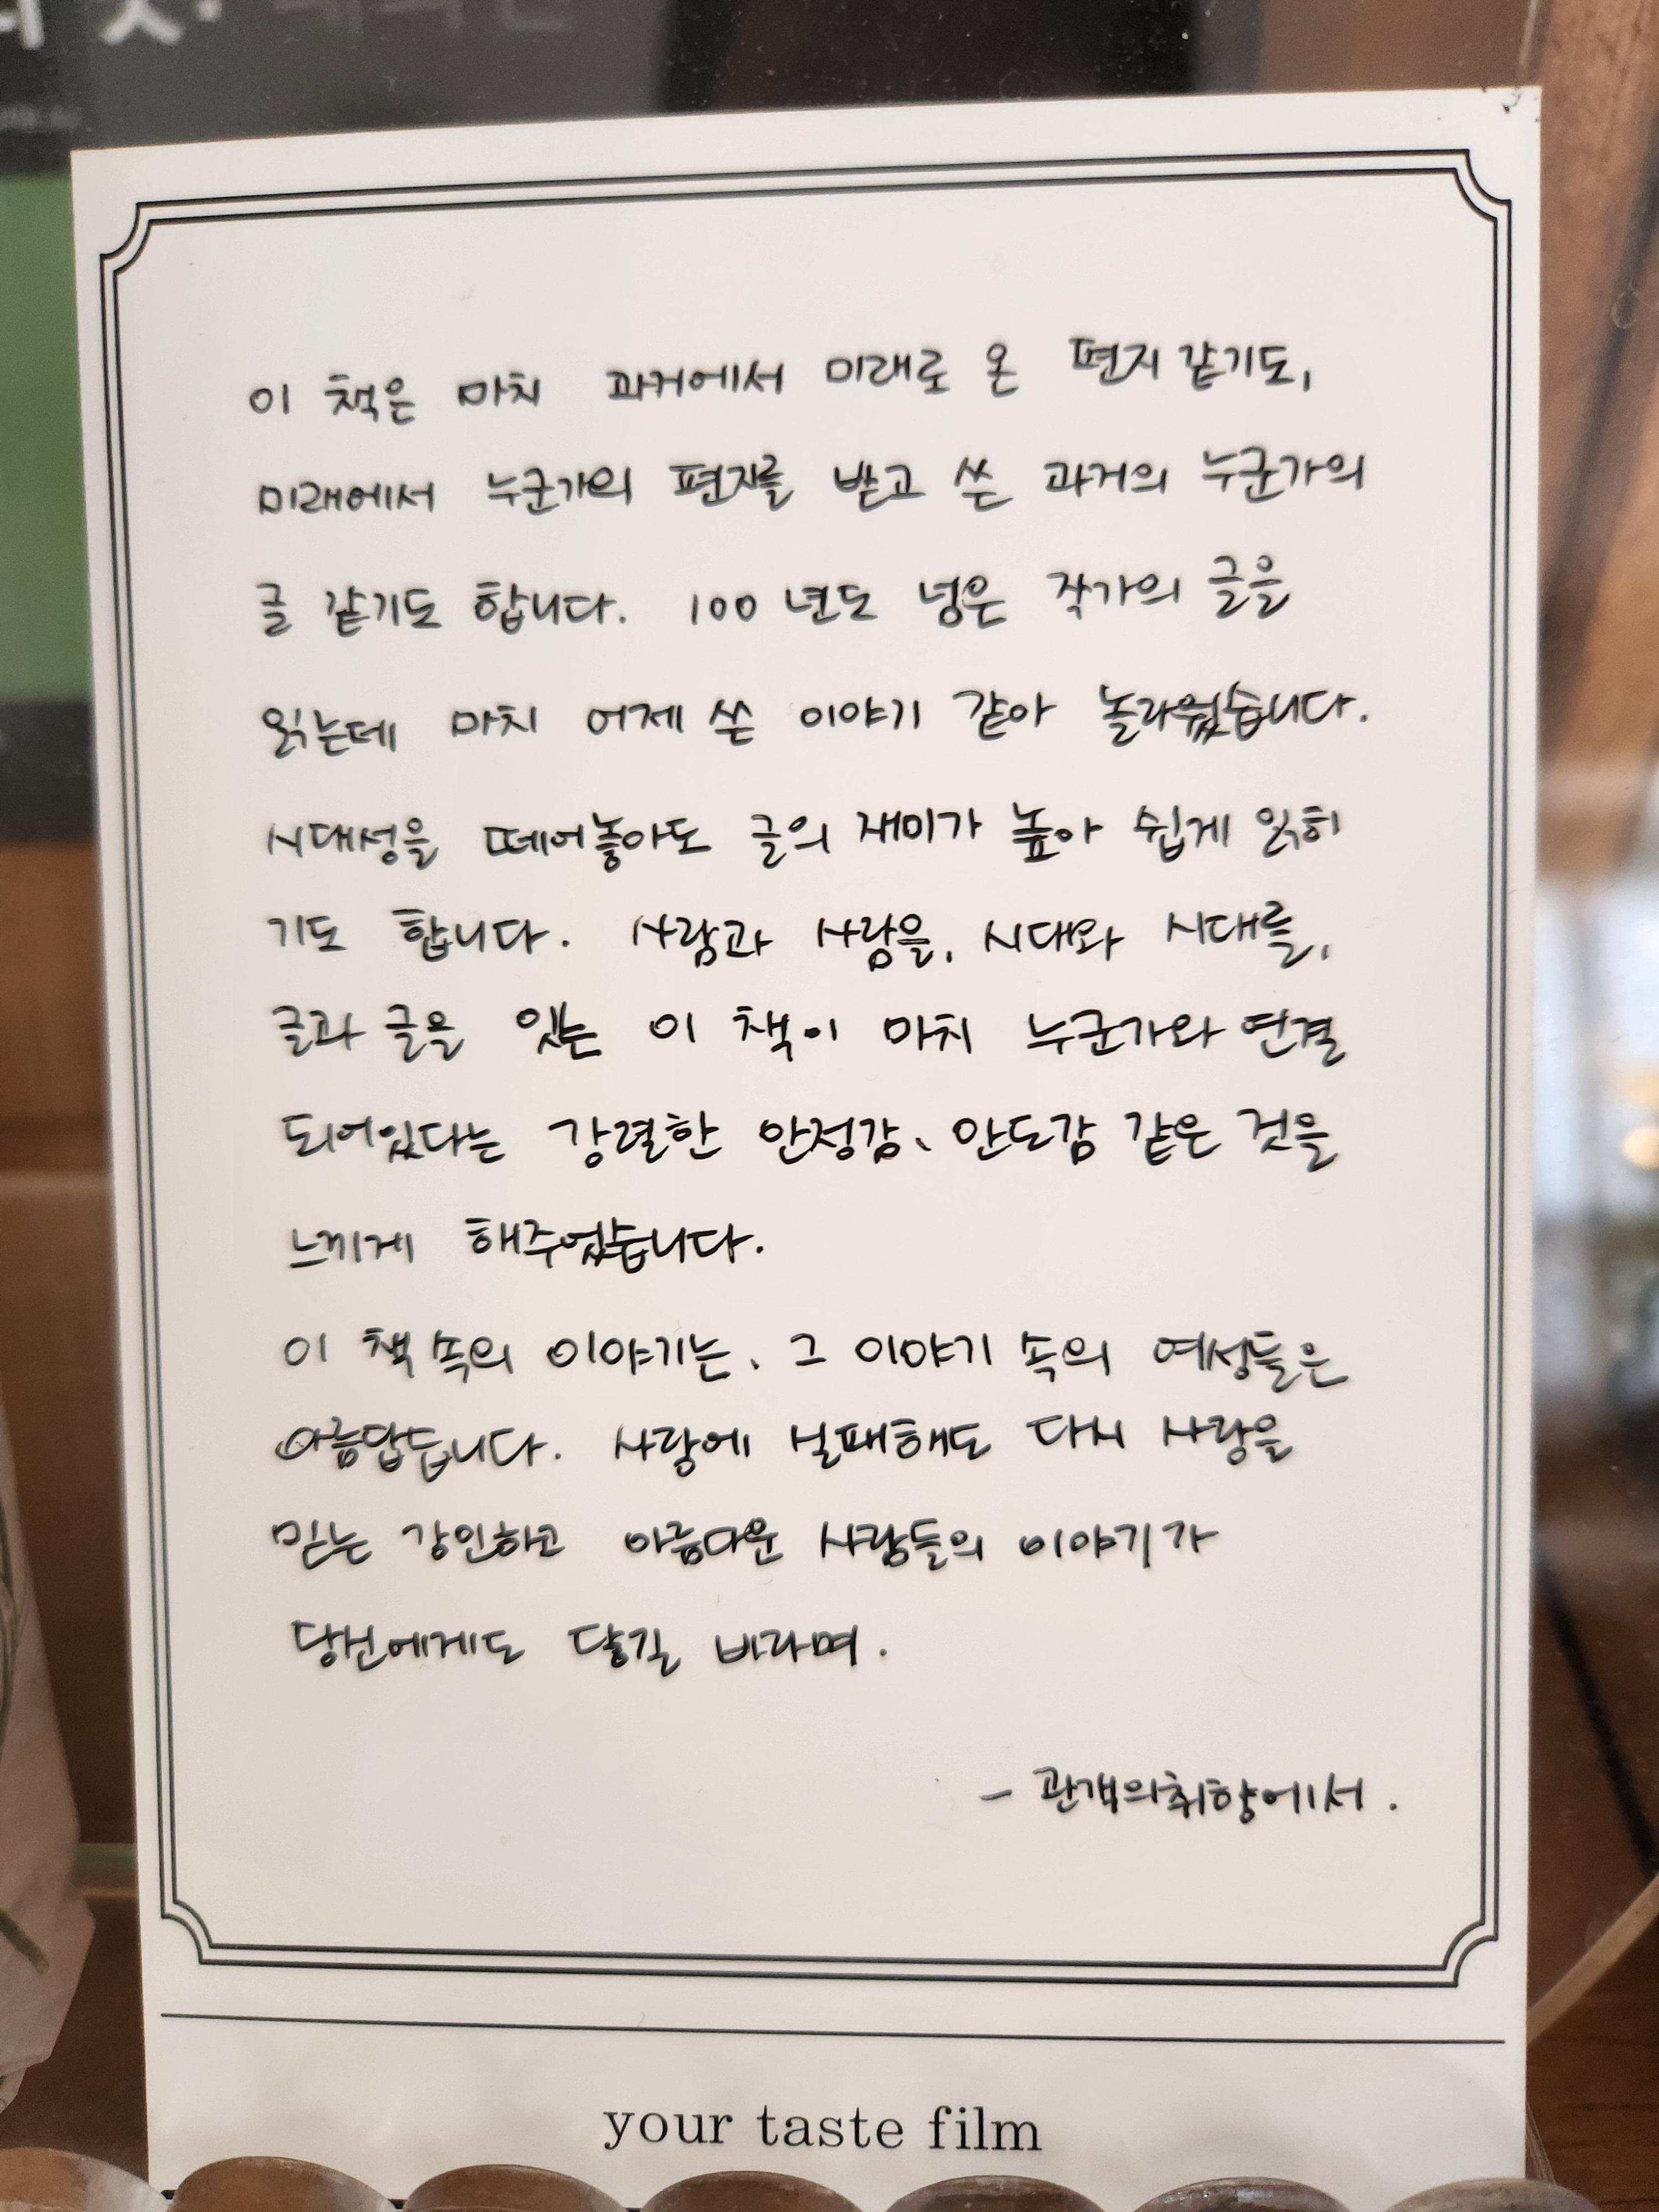 이 책은 마치 과거에서 미래로 온 편지 같기도,
미래에서 누군가의 편지를 받고 쓴 과거의 누군가의
글 같기도 합니다. 100년도 넘은 작가의 글을
읽는데 마치 어제 쓴 이야기 같아 놀라웠습니다.
시대성을 떼어놓아도 글의 재미가 높아 쉽게 읽히
기도 합니다. 사람과 사람을, 시대와 시대를,
글과 글을 잇는 이 책이 마치 누군가와 연결
되어있다는 강렬한 안정감, 안도감 같은 것을
느끼게 해주었습니다.
이 책 속의 이야기는, 그 이야기 속의 여성들은
아름답습니다. 사랑에 실패해도 다시 사랑을
믿는 강인하고 아름다운 사람들의 이야기가
당신에게도 닿길 바라며.
- 관객의취향에서.
your taste film